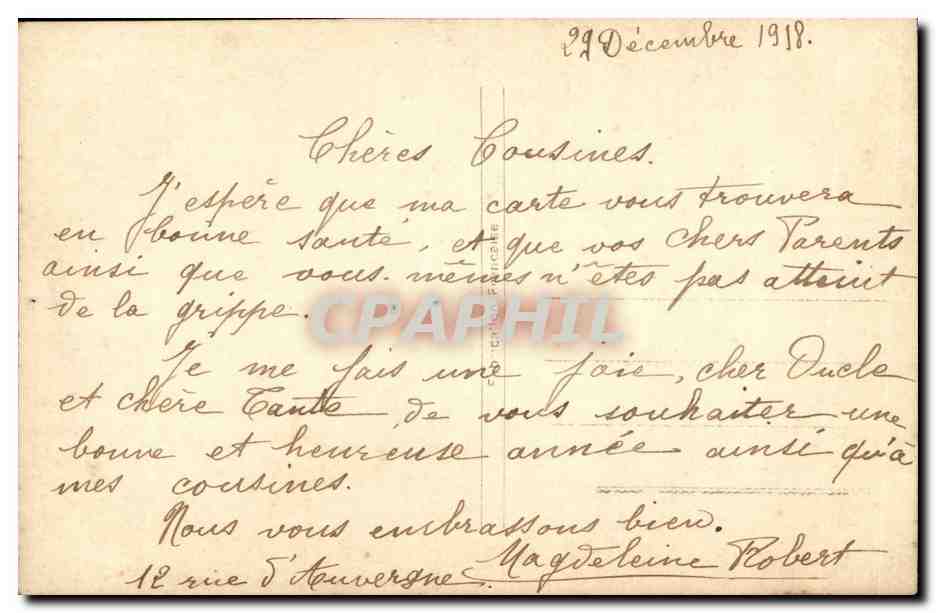 29 Décembre 1918.
Chères Cousines.
J'espère que ma carte vous trouvera
en bonne santé, et que vos chers Parents
ainsi que vous-mêmes n'êtes pas atteint
de la grippe.
CPAPHIL
Je me fais une joie, cher Oncle
et chère Tante, de vous souhaiter une
bonne et heureuse année ainsi qu'à
mes cousines.
Nous vous embrassons bien.
Magdeleine Robert
12 rue d'Auvergne.
Fabrication Française